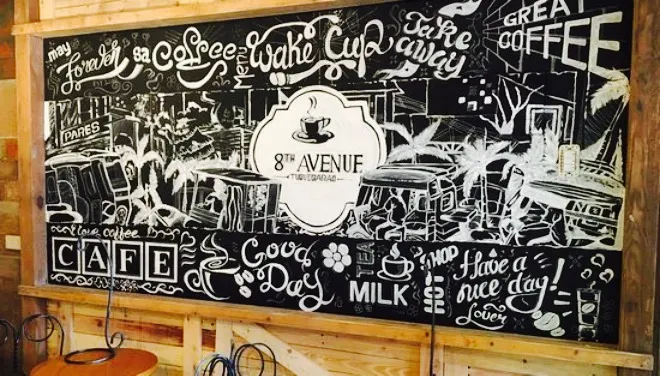 may Forever sa Coffee
Menu
Wake Cup
Take away
GREAT COFFEE
PARES
8TH AVENUE
I love coffee
CAFE
Good Day
TEA
MILK
SHOP
HOT
Have a nice day!
Lover